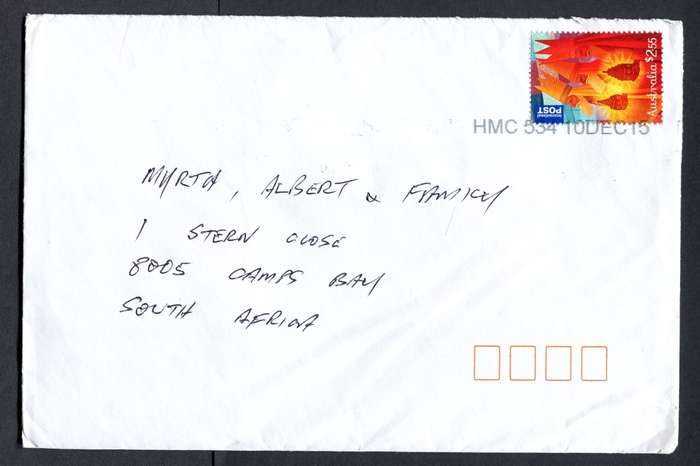 Australia $2.55
International
POST
HMC 534 10DEC15
MYRTA, ALBERT & FAMILY
1 STERN CLOSE
8005 CAMPS BAY
SOUTH AFRICA